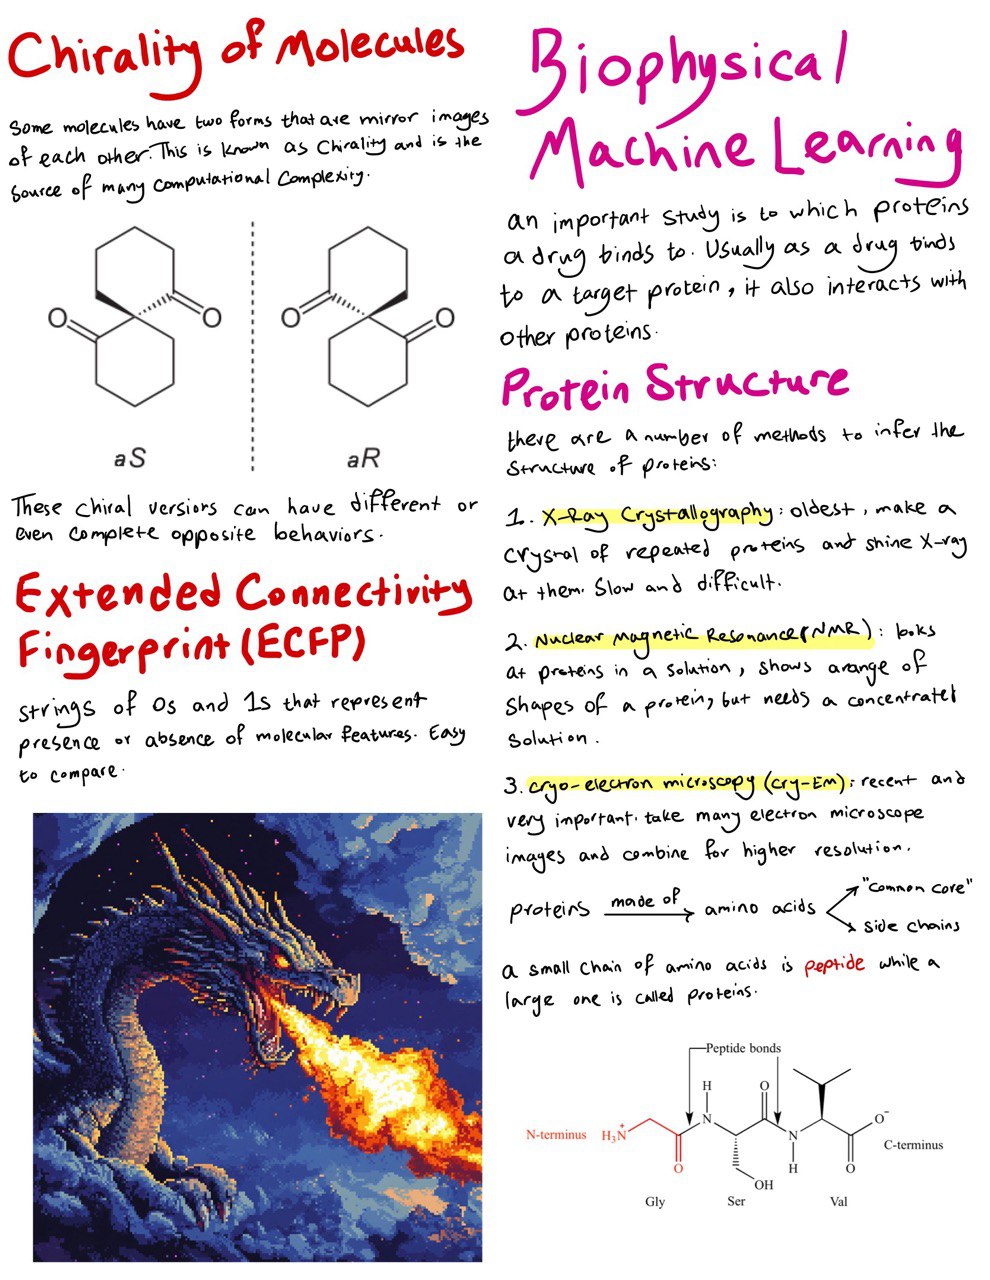 Chirality of Molecules
Some molecules have two forms that are mirror images
of each other. This is known as Chirality and is the
source of many computational complexity.
O
O
O
O
aS
aR
These chiral versions can have different or
even complete opposite behaviors.
Extended Connectivity
Fingerprint (ECFP)
strings of 0s and 1s that represent
presence or absence of molecular features. Easy
to compare.
Biophysical
Machine Learning
an important study is to which proteins
a drug binds to. Usually as a drug binds
to a target protein, it also interacts with
other proteins.
Protein Structure
there are a number of methods to infer the
structure of proteins:
1. X-Ray Crystallography: oldest, make a
crystal of repeated proteins and shine X-ray
at them. Slow and difficult.
2. Nuclear Magnetic Resonance (NMR): looks
at proteins in a solution, shows a range of
shapes of a protein, but needs a concentrated
solution.
3. cryo-electron microscopy (cry-EM): recent and
very important. take many electron microscope
images and combine for higher resolution.
proteins made of amino acids "Common core"
side chains
a small chain of amino acids is peptide while a
large one is called proteins.
Peptide bonds
H
O
N
O-
N-terminus
H3N+
N
C-terminus
O
H
O
OH
Gly
Ser
Val